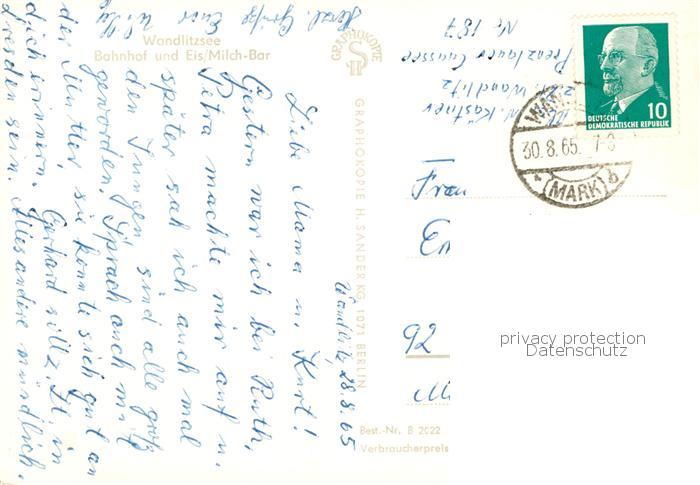 Wandlitzsee
Bahnhof und Eis/Milch-Bar
Wandlitz 28.8.65
Liebe Mama u. Kurt!
Gestern war ich bei Ruth,
Petra machte mir auf u.
später sah ich auch mal
den Jungen sind alle groß
geworden. Sprach auch mit
der Mutter, sie konnte sich gut an
dich erinnern. Gerhard soll z. Zt. in
Dresden sein. Alles andere mündlich.
Herzl. Grüße Euer Willy
GRAPHOKOPIE
GRAPHOKOPIE H. SANDER KG, 1071 BERLIN
Best.-Nr. B 2022
Verbraucherpreis
W. Kästner
Wandlitz
Prenzlauer Chaussee
Nr. 187
10
DEUTSCHE
DEMOKRATISCHE REPUBLIK
30.8.65
(MARK)
b
Frau
92
privacy protection
Datenschutz